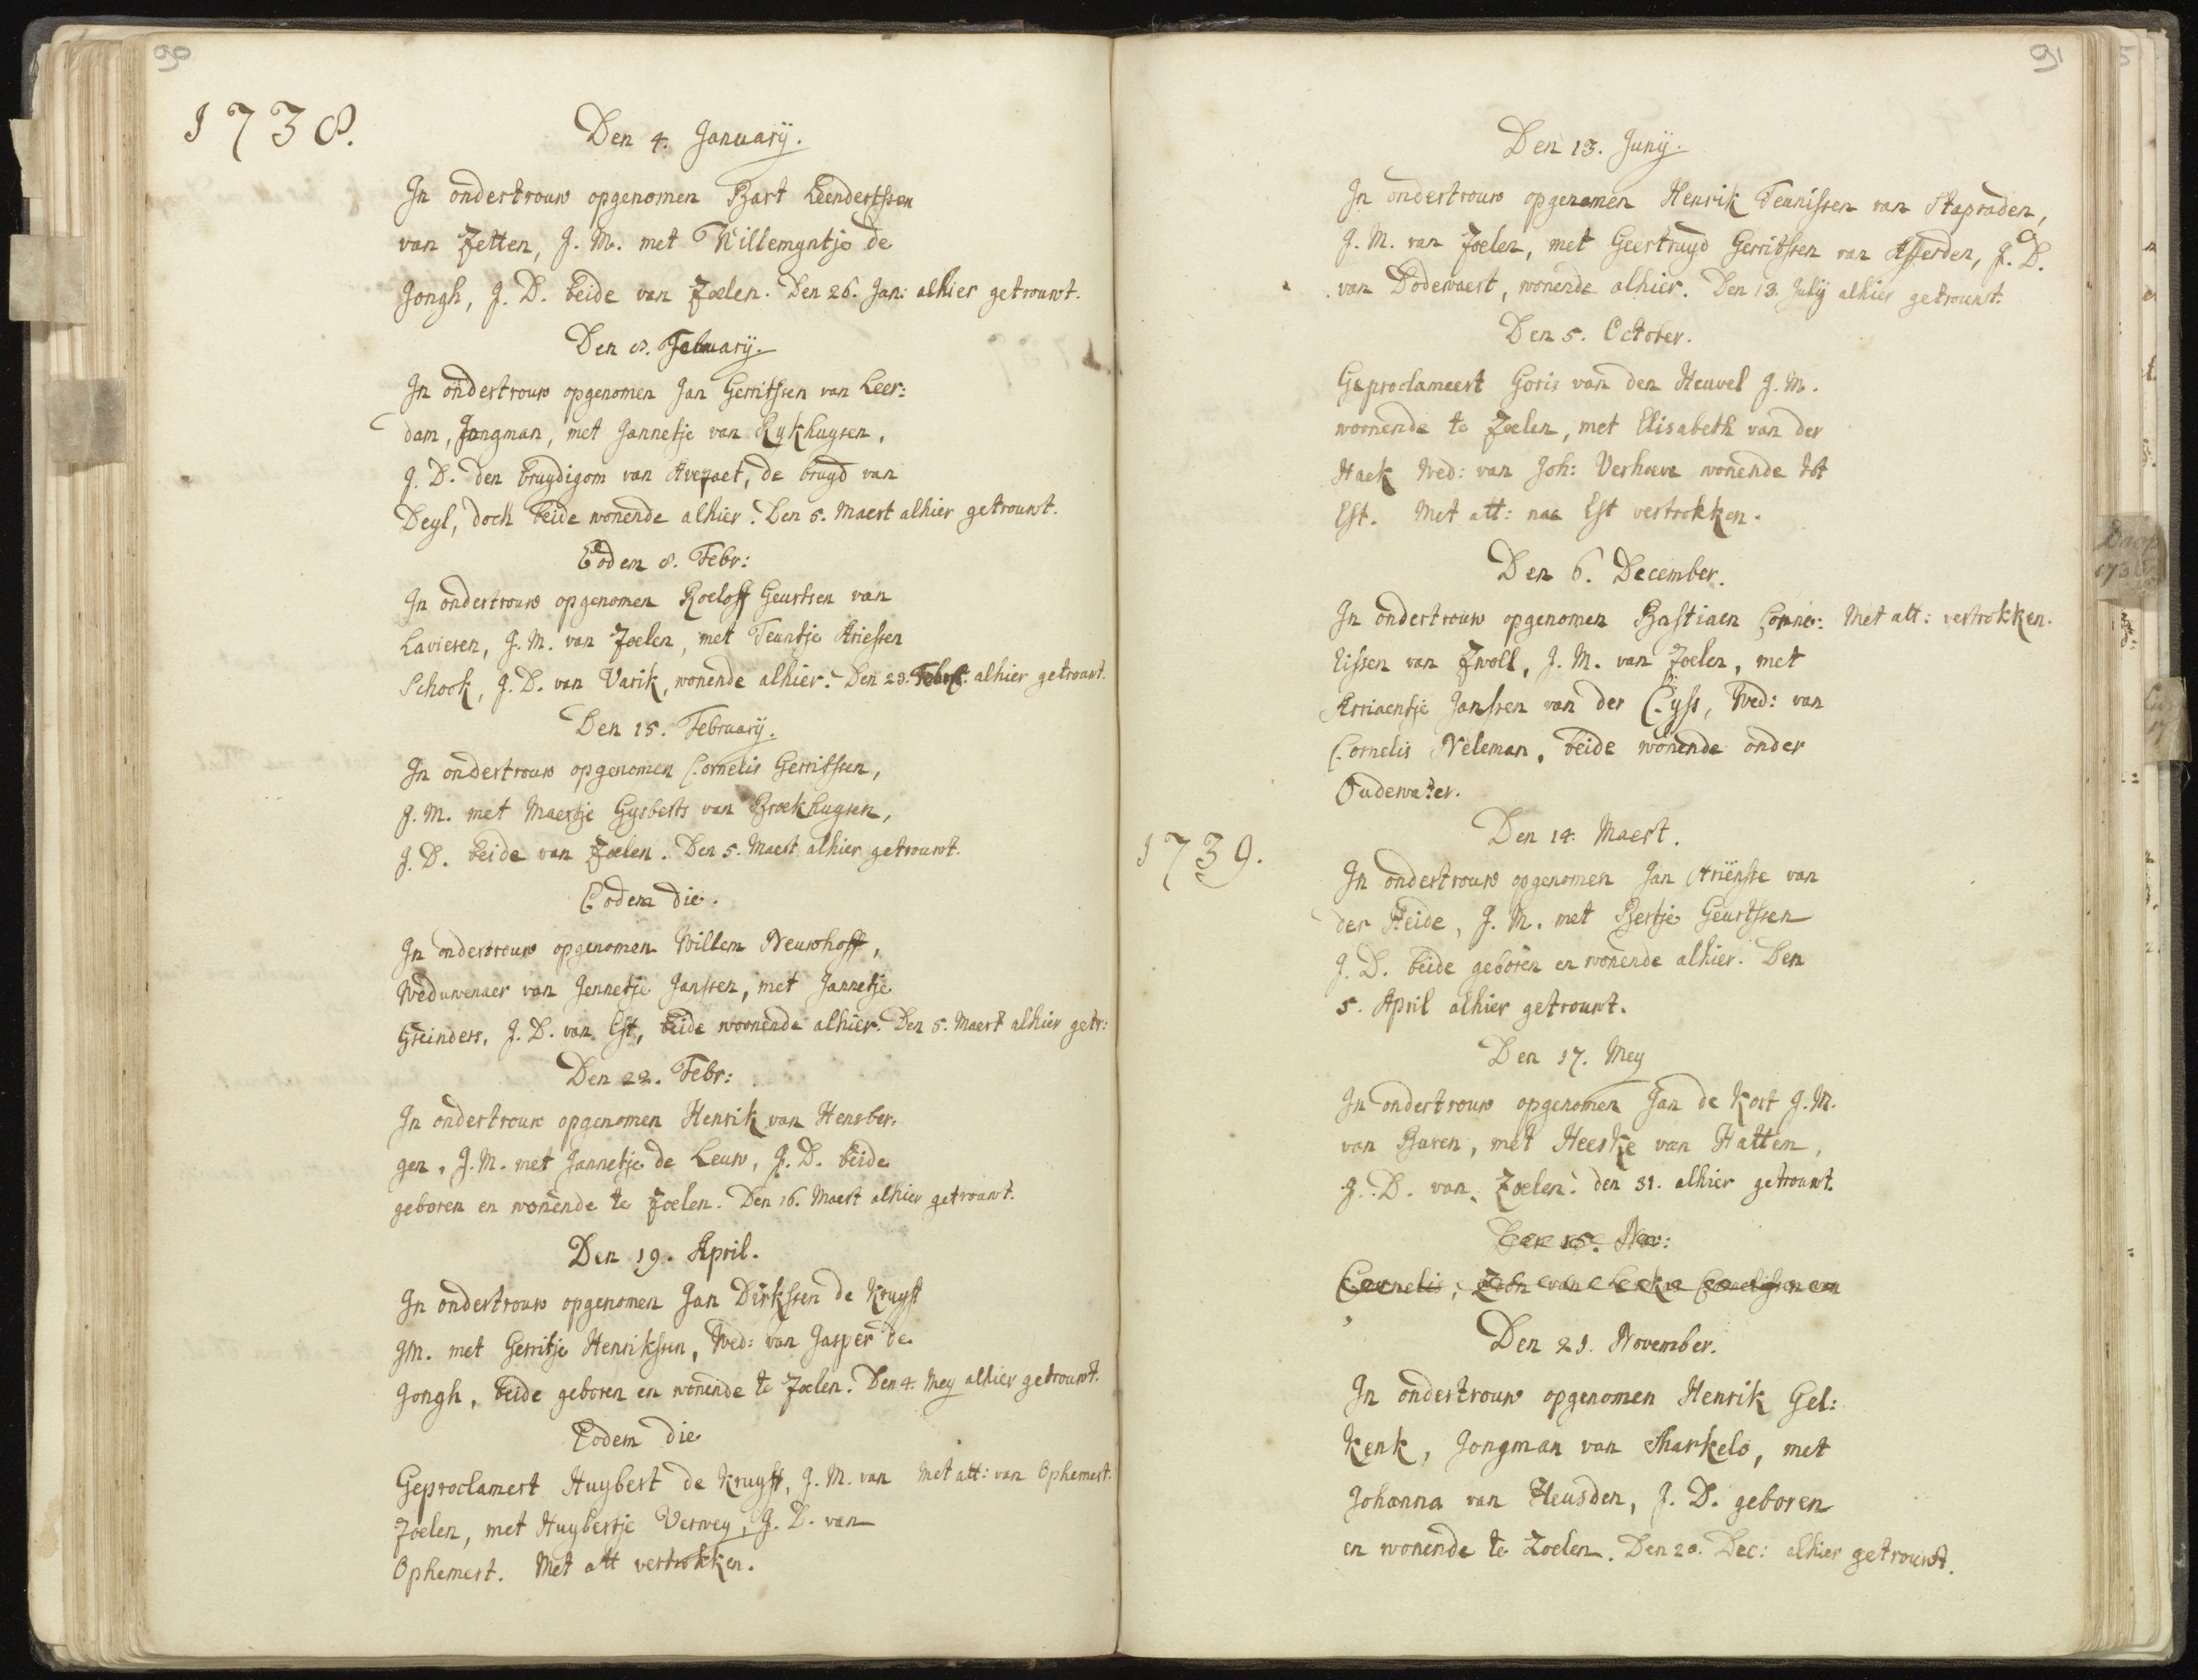 90
1738.
Den 4. January.
In ondertrouw opgenomen Bart Leendertssen
van Zetten, J. M. met Willemyntje de
Jongh, J. D. beide van Zoelen. Den 26. Jan: alhier getrouwt.
Den 8. February.
In ondertrouw opgenomen Jan Gerritssen van Leer:
dam, Jongman, met Jannetje van Rykhuysen,
J. D. den bruydigom van Avezaet, de bruyd van
Deyl, doch beide wonende alhier. Den 5. Maert alhier getrouwt.
Eodem 8. Febr:
In ondertrouw opgenomen Roeloff Geurtsen van
Lavieren, J. M. van Zoelen, met Teuntje Ariessen
Schook, J. D. van Varik, wonende alhier. Den 23. Febr: alhier getrouwt.
Den 15. February.
In ondertrouw opgenomen Cornelis Gerritssen,
J. M. met Maertje Gysberts van Broekhuysen,
J. D. beide van Zoelen. Den 5. Maert alhier getrouwt.
Eodem die.
In ondertrouw opgenomen Willem Neuwhoff,
Weduwenaer van Jennetje Janssen, met Jannetje
Greinders, J. D. van Est, beide woonende alhier. Den 5. Maert alhier getr:
Den 22. Febr:
In ondertrouw opgenomen Henrik van Hensber.
gen, J. M. met Jannetje de Leuw, J. D. beide
geboren en wonende te Zoelen. Den 16. Maert alhier getrouwt.
Den 19. April.
In ondertrouw opgenomen Jan Dirkssen de Kruyff
JM. met Gerritje Henrikssen, Wed: van Jasper de
Jongh, beide geboren en wonende te Zoelen. Den 4. Mey alhier getrouwt.
Eodem die
Geproclamert Huybert de Kruyff, J. M. van Met att: van Ophemert.
Zoelen, met Huybertje Verwey, J. D. van
Ophemert. Met att vertrokken.
91
Den 13. Juny.
In ondertrouw opgenomen Henrik Teunissen van Stapraden,
J. M. van Zoelen, met Geertruyd Gerritssen van Afferden, J. D.
van Dodewaert, wonende alhier. Den 13. July alhier getrouwt.
Den 5. October.
Geproclameert Goris van den Heuvel J. M.
woonende te Zoelen, met Elisabeth van der
Haek Wed: van Joh: Verhoeve wonende tot
Est. Met att: nae Est vertrokken.
Den 6. December.
In ondertrouw opgenomen Bastiaen Corne: Met att: vertrokken.
lissen van Zwoll, J. M. van Zoelen, met
Arriaentje Janssen van der Lyss, Wed: van
Cornelis Neleman, beide wonende onder
Oudewater.
1739.
Den 14. Maert.
In ondertrouw opgenomen Jan Ariënsse van
der Heide, J. M. met Bertje Geurtssen
J. D. beide geboren en wonende alhier. Den
5. April alhier getrouwt.
Den 17. Mey
In ondertrouw opgenomen Jan de Kort J. M.
van Buren, met Heeske van Hattem,
J. D. van Zoelen. den 31. alhier getrouwt.
Den 15. Nov:
Cornelis, Zoon van Cornelissen van
Den 21. November.
In ondertrouw opgenomen Henrik Gel:
kenk, Jongman van Sharkelo, met
Johanna van Heusden, J. D. geboren
en wonende te Zoelen. Den 20. Dec: alhier getrouwt.